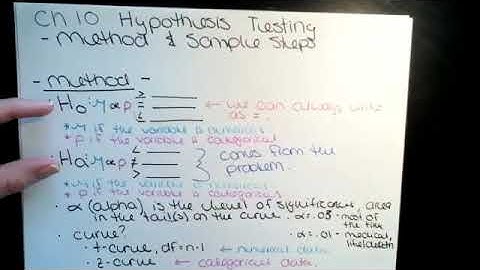 Ch 10 Hypothesis Testing
- Method & Sample Steps
- Method -
H₀: μ or p ≥ = ≤ ___ ← we can always write as =.
* μ if the variable is numerical
* p if the variable is categorical
Ha: μ or p < ≠ > ___ } comes from the problem.
* μ if the variable is numerical
* p if the variable is categorical
• α (alpha) is the level of significance, area
in the tail(s) on the curve. α=.05 - most of the time
• curve? α=.01 - medical, life/death
• t-curve, df=n-1 ← numerical data
• z-curve ← categorical data.